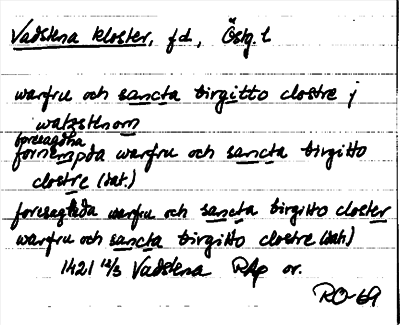 Vadstena kloster, fd., Östg. l
warfru och sancta birgitto clostre j
watzstenom
foresagdha
fornempda warfru och sancta birgitto
clostre (dat.)
foresagheda warfru och sancta birgitto closter
warfru och sancta birgitto clostre (dat.)
1421 12/3 Vadstena RAp or.
RO-69